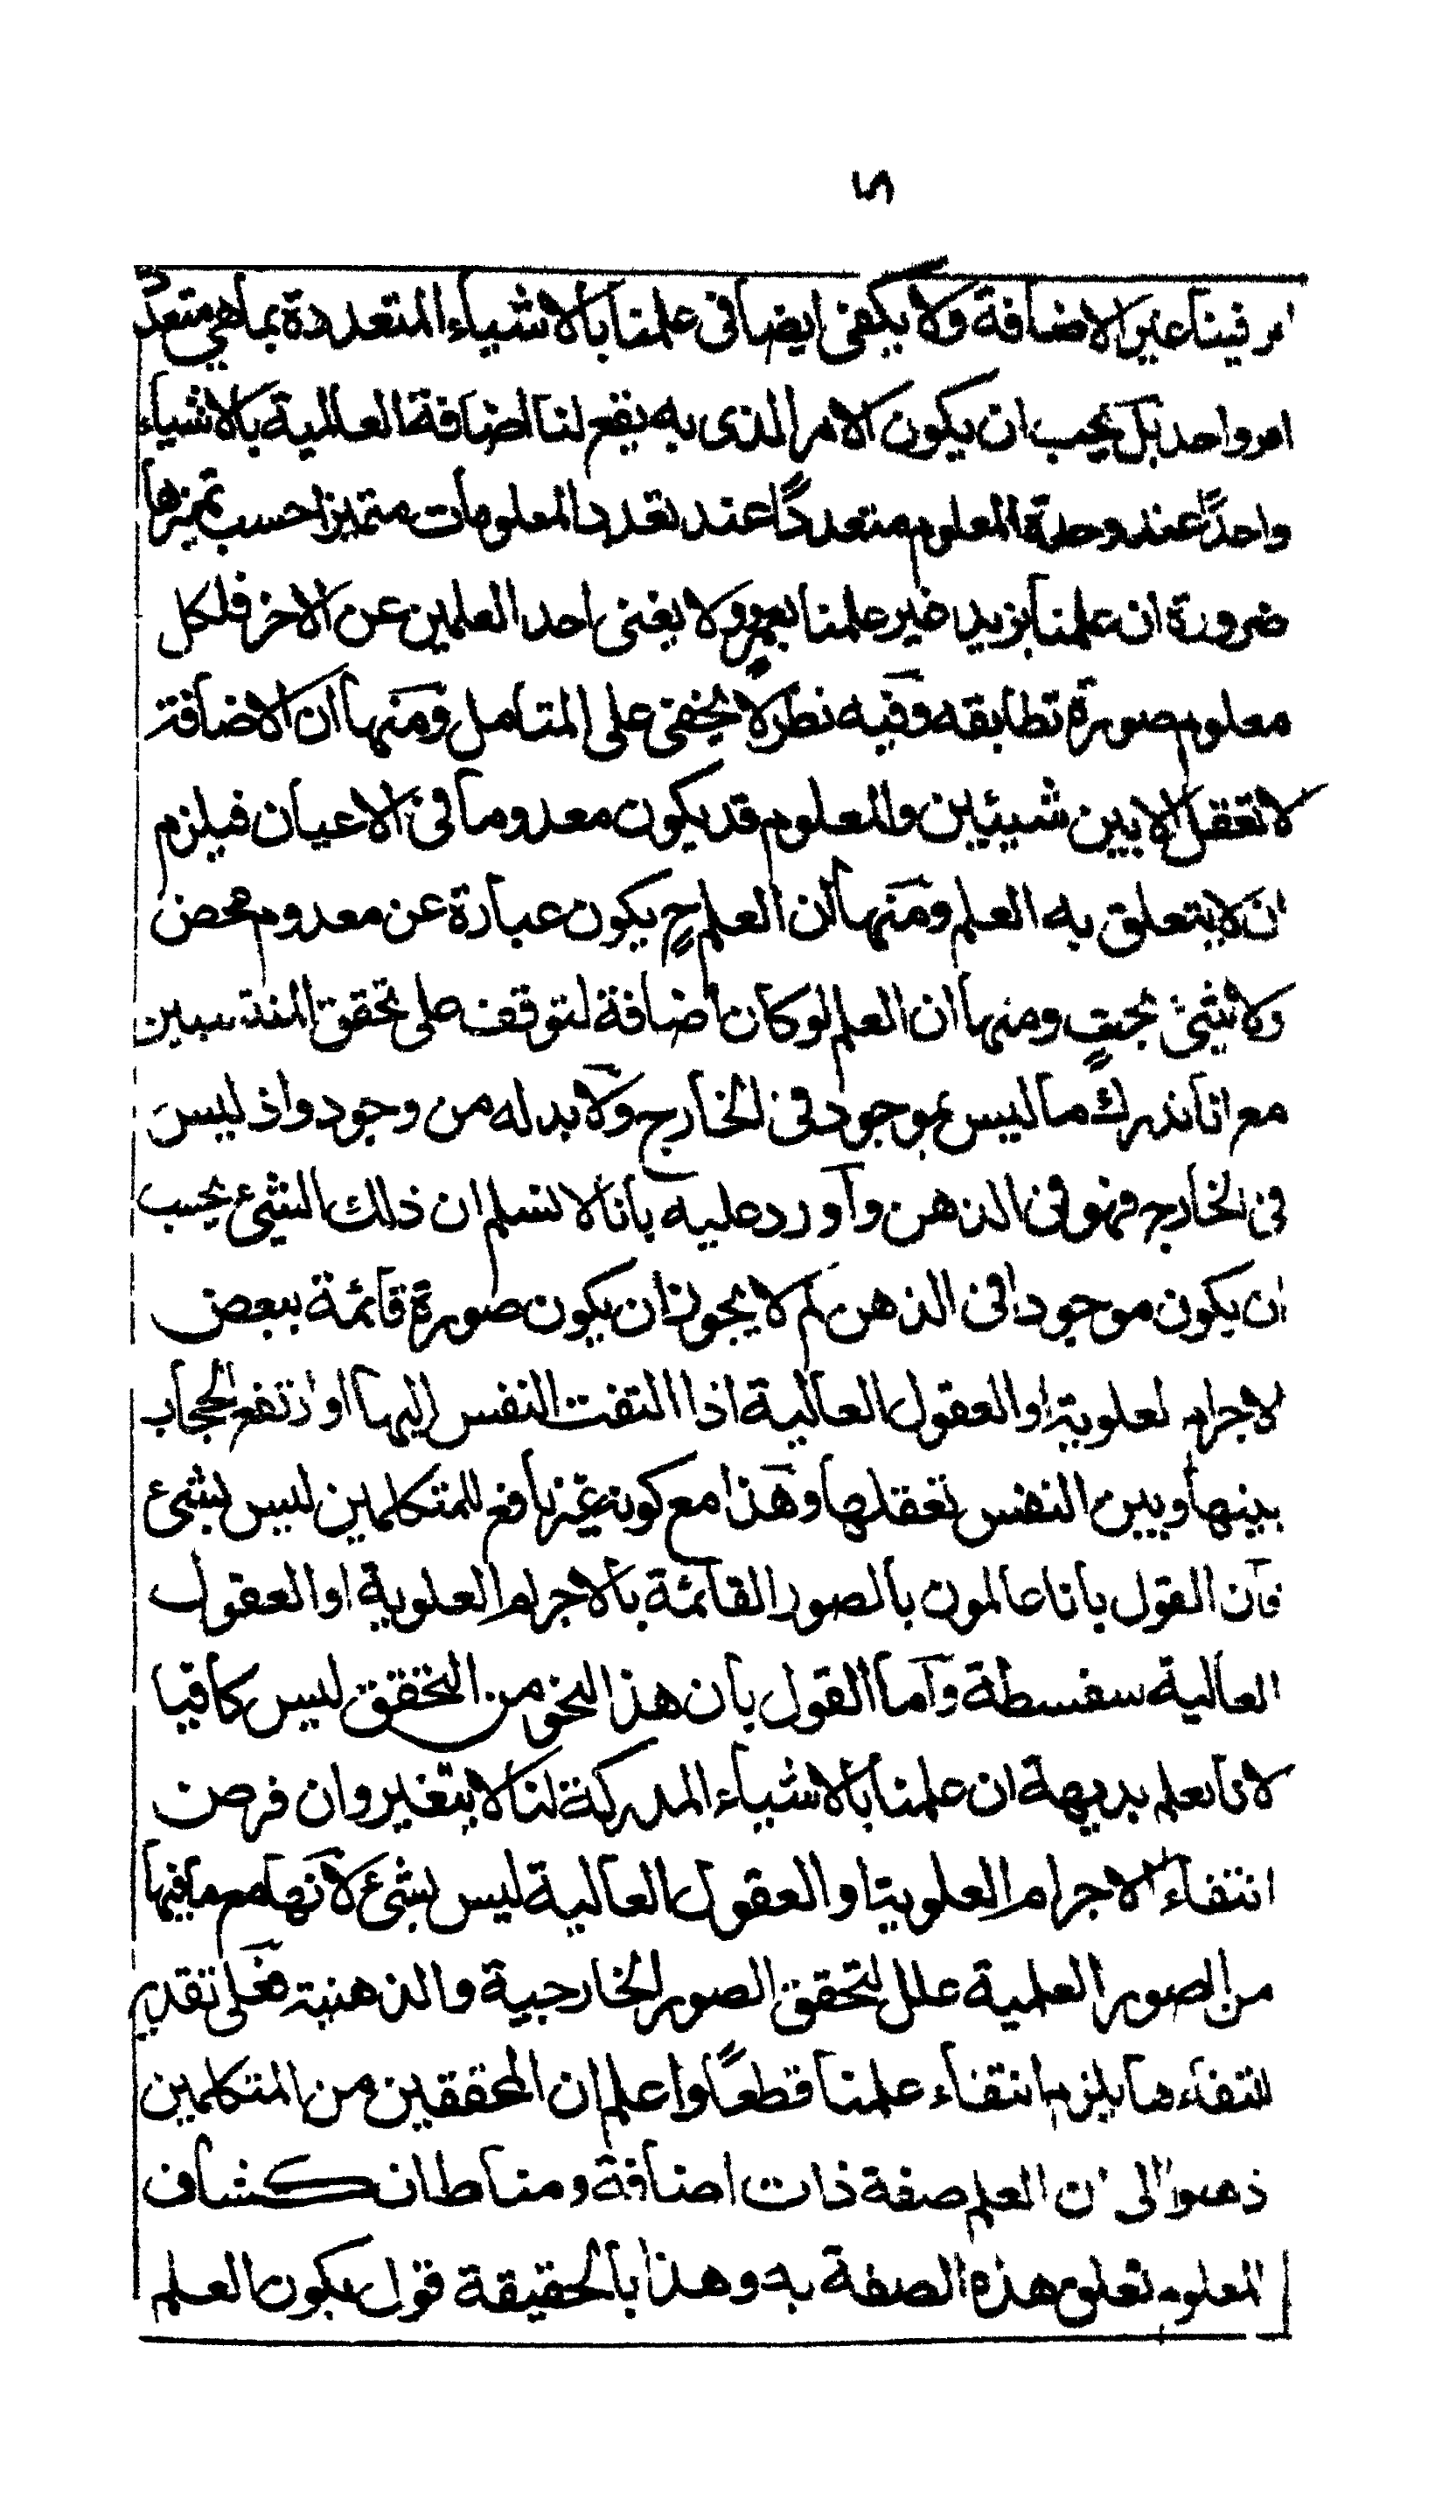 ۵
امر فينا غير الاضافة ولا يكفى ايضا فى علمنا بالاشياء المتعددة بما هى متعددة
امر واحد بل يجب ان يكون الامر الذى به يقع لنا اضافة العالمية بالاشياء
واحدًا عند وحدة المعلوم متعددًا عند تعدد المعلومات متميزا حسب تميزها
ضرورة ان علمنا بزيد غير علمنا بعمرو ولا يغنى احد العلمين عن الاخر فلكل
معلوم صورة تطابقه وفيه نظر لا يخفى على المتامل ومنها ان الاضافة
لا تعقل الا بين شيئين والمعلوم قد يكون معدوما فى الاعيان فيلزم
ان لا يتعلق به العلم ومنها ان العلم ح يكون عبارة عن معدوم محض
ولا شئ بحت ومنها ان العلم لو كان اضافة لتوقف على تحقق المنتسبين
مع انا ندرك ما ليس بموجود فى الخارج ولا بد له من وجود واذ ليس
فى الخارج فهو فى الذهن واورد عليه بانا لا نسلم ان ذلك الشئ يجب
ان يكون موجودا فى الذهن لم لا يجوز ان يكون صورة قائمة ببعض
الاجرام العلوية او العقول العالية اذا التفت النفس اليها او ارتفع الحجاب
بينها وبين النفس تعقلها وهذا مع كونه غير نافع للمتكلمين ليس بشئ
فان القول بانا عالمون بالصور القائمة بالاجرام العلوية او العقول
العالية سفسطة واما القول بان هذا النحو من التحقق ليس كافيا
لانا نعلم بديهة ان علمنا بالاشياء المدركة لنا لا يتغير وان فرض
انتفاء الاجرام العلوية او العقول العالية ليس بشئ لانها مع ما فيها
من الصور العلمية علل لتحقق الصور الخارجية والذهنية فعلى تقدير
انتفاءها يلزم انتفاء علمنا قطعًا واعلم ان المحققين من المتكلمين
ذهبوا الى ان العلم صفة ذات اضافة ومناط انكشاف
المعلوم تعلق هذه الصفة به وهذا بالحقيقة قول بكون العلم